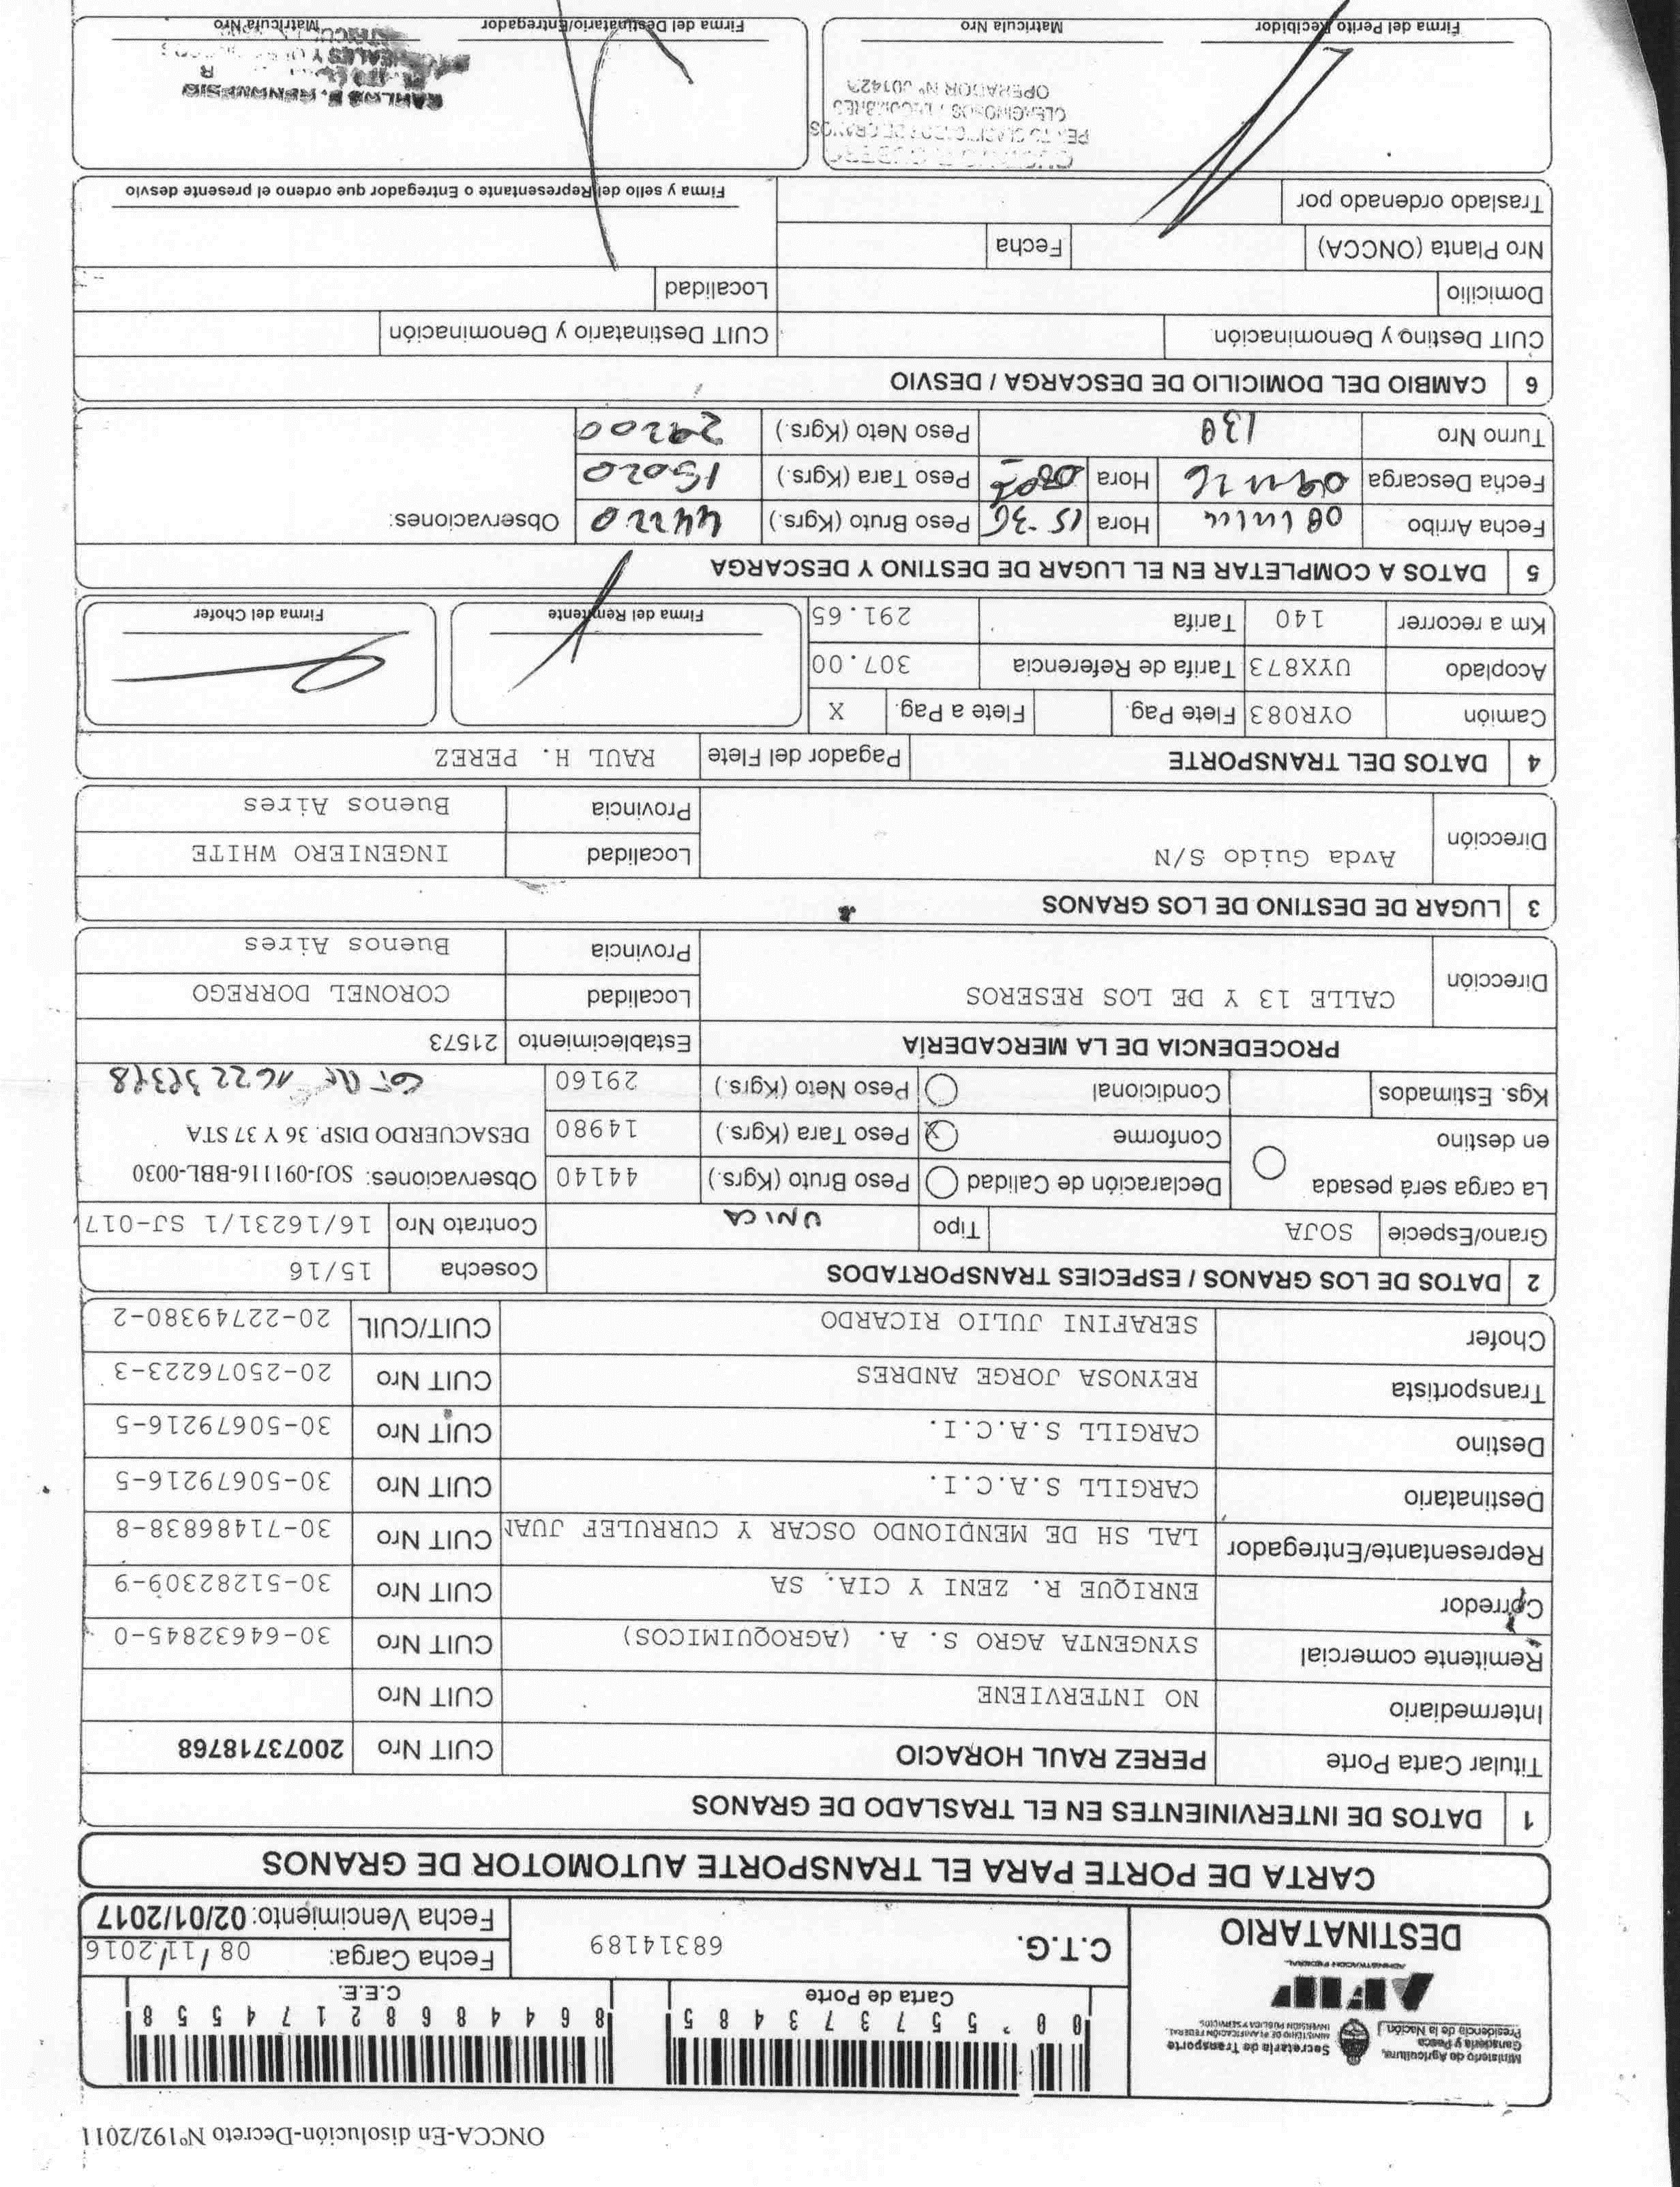 ONCCA-En disolución-Decreto Nº192/2011
Ministerio de Agricultura,
Ganadería y Pesca
Presidencia de la Nación
Secretaría de Transporte
MINISTERIO DE PLANIFICACIÓN FEDERAL,
INVERSIÓN PÚBLICA Y SERVICIOS
AFIP
ADMINISTRACION FEDERAL
DESTINATARIO
Carta de Porte
C.E.E.
86448682174558
C.T.G. 68314189
Fecha Carga: 08/11/2016
Fecha Vencimiento: 02/01/2017
CARTA DE PORTE PARA EL TRANSPORTE AUTOMOTOR DE GRANOS
1 DATOS DE INTERVINIENTES EN EL TRASLADO DE GRANOS
Titular Carta Porte PEREZ RAUL HORACIO CUIT Nro 20073718768
Intermediario NO INTERVIENE CUIT Nro
Remitente comercial SYNGENTA AGRO S. A. (AGROQUIMICOS) CUIT Nro 30-64632845-0
Corredor ENRIQUE R. ZENI Y CIA. SA CUIT Nro 30-51282309-9
Representante/Entregador LAL SH DE MENDIONDO OSCAR Y CURRULEF JUAN CUIT Nro 30-71486838-8
Destinatario CARGILL S.A.C.I. CUIT Nro 30-50679216-5
Destino CARGILL S.A.C.I. CUIT Nro 30-50679216-5
Transportista REYNOSA JORGE ANDRES CUIT Nro 20-25076223-3
Chofer SERAFINI JULIO RICARDO CUIT/CUIL 20-22749380-2
2 DATOS DE LOS GRANOS / ESPECIES TRANSPORTADOS Cosecha 15/16
Grano/Especie SOJA Tipo UNICA Contrato Nro 16/16231/1 SJ-017
La carga será pesada en destino
Declaración de Calidad Peso Bruto (Kgrs.) 44140 Observaciones: SOJ-091116-BBL-0030
Conforme X Peso Tara (Kgrs.) 14980 DESACUERDO DISP. 36 Y 37 STA
Kgs. Estimados Condicional Peso Neto (Kgrs.) 29160
PROCEDENCIA DE LA MERCADERÍA Establecimiento 21573
Dirección CALLE 13 Y DE LOS RESEROS Localidad CORONEL DORREGO
Provincia Buenos Aires
3 LUGAR DE DESTINO DE LOS GRANOS
Dirección Avda Guido S/N Localidad INGENIERO WHITE
Provincia Buenos Aires
4 DATOS DEL TRANSPORTE Pagador del Flete RAUL H. PEREZ
Camión OYR083 Flete Pag. Flete a Pag. X
Acoplado UYX873 Tarifa de Referencia 307.00
Km a recorrer 140 Tarifa 291.65
Firma del Remitente Firma del Chofer
5 DATOS A COMPLETAR EN EL LUGAR DE DESTINO Y DESCARGA
Fecha Arribo Hora 15-36 Peso Bruto (Kgrs.) 44220 Observaciones:
Fecha Descarga Hora Peso Tara (Kgrs.) 15020
Turno Nro 130 Peso Neto (Kgrs.) 29200
6 CAMBIO DEL DOMICILIO DE DESCARGA / DESVIO
CUIT Destino y Denominación CUIT Destinatario y Denominación
Domicilio Localidad
Nro Planta (ONCCA) Fecha
Traslado ordenado por
Firma y sello del Representante o Entregador que ordeno el presente desvio
OPERADOR Nº
Firma del Perito Recibidor Matricula Nro
Firma del Destinatario/Entregador Matricula Nro